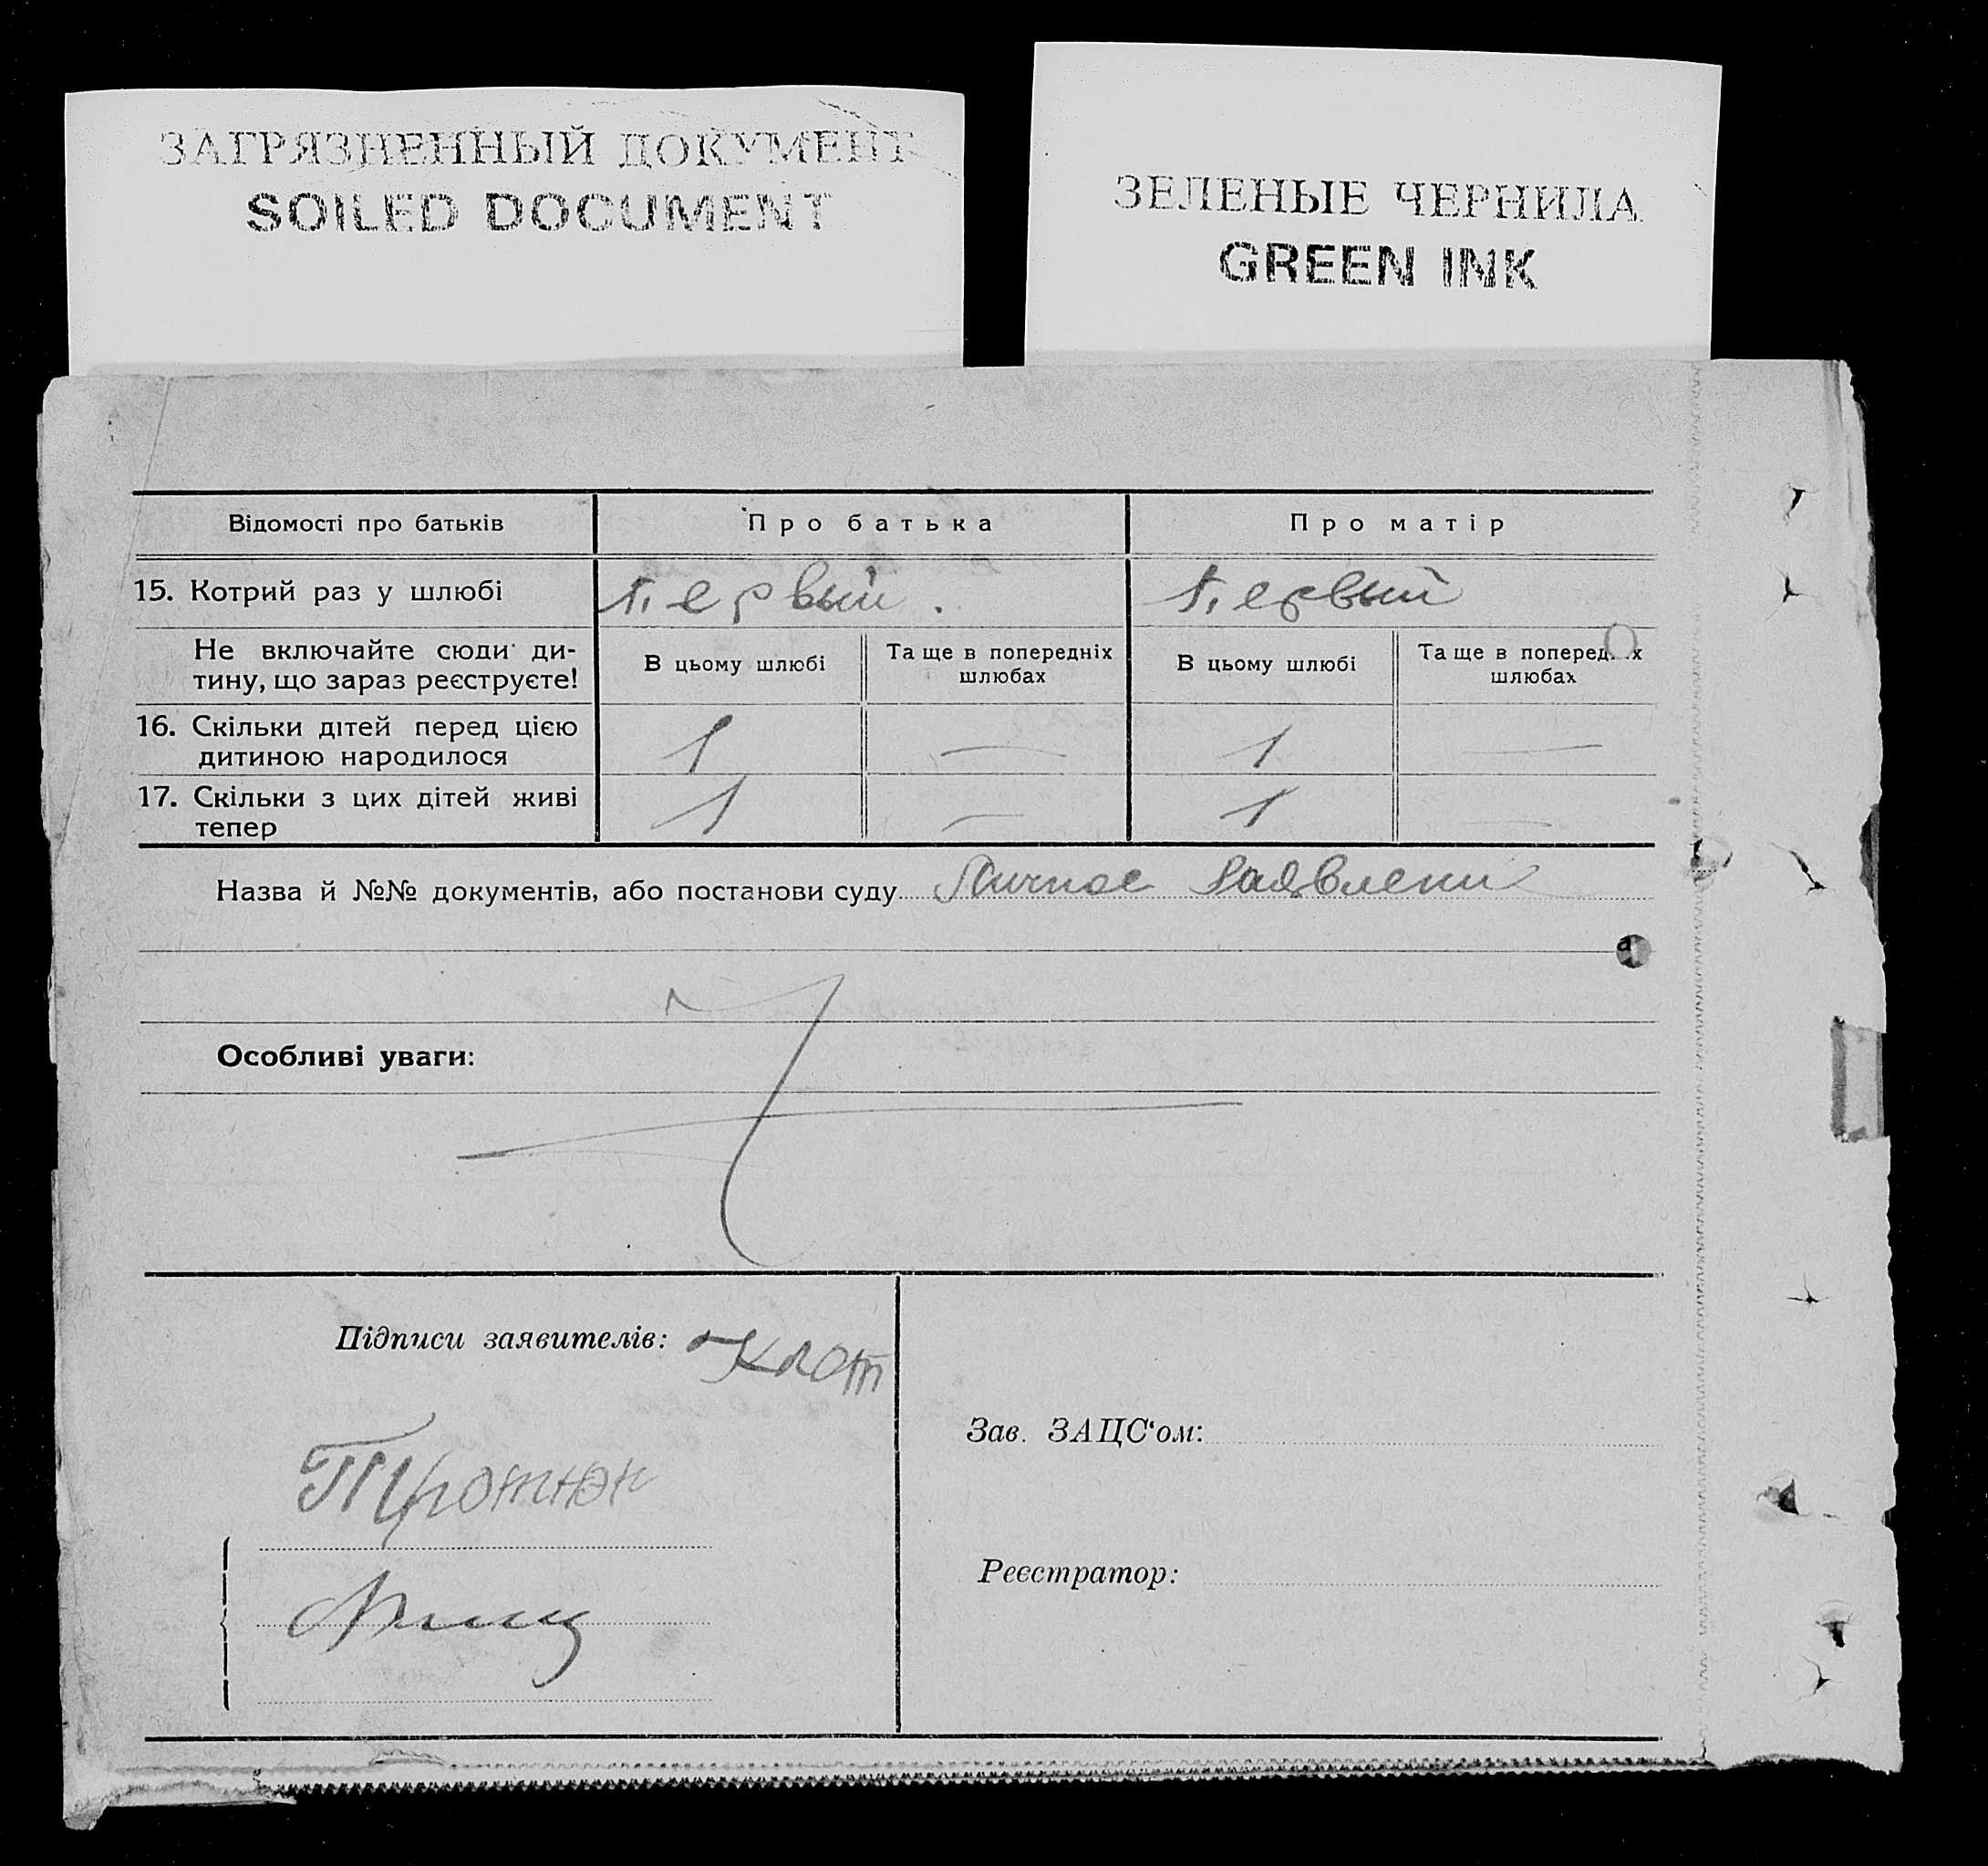 ЗАГРЯЗНЕННЫЙ ДОКУМЕНТ
SOILED DOCUMENT
ЗЕЛЕНЫЕ ЧЕРНИЛА
GREEN INK
Відомості про батьків Про батька Про матір
15. Котрий раз у шлюбі Первый. Первый
Не включайте сюди ди-
тину, що зараз реєструєте!
В цьому шлюбі Та ще в попередніх
шлюбах
В цьому шлюбі Та ще в попередніх
шлюбах
16. Скільки дітей перед цією
дитиною народилося 1 — 1 —
17. Скільки з цих дітей живі
тепер 1 — 1 —
Назва й №№ документів, або постанови суду Личное Заявлени
Особливі уваги:
Підписи заявителів:
Зав. ЗАЦС‘ом:
Реєстратор: